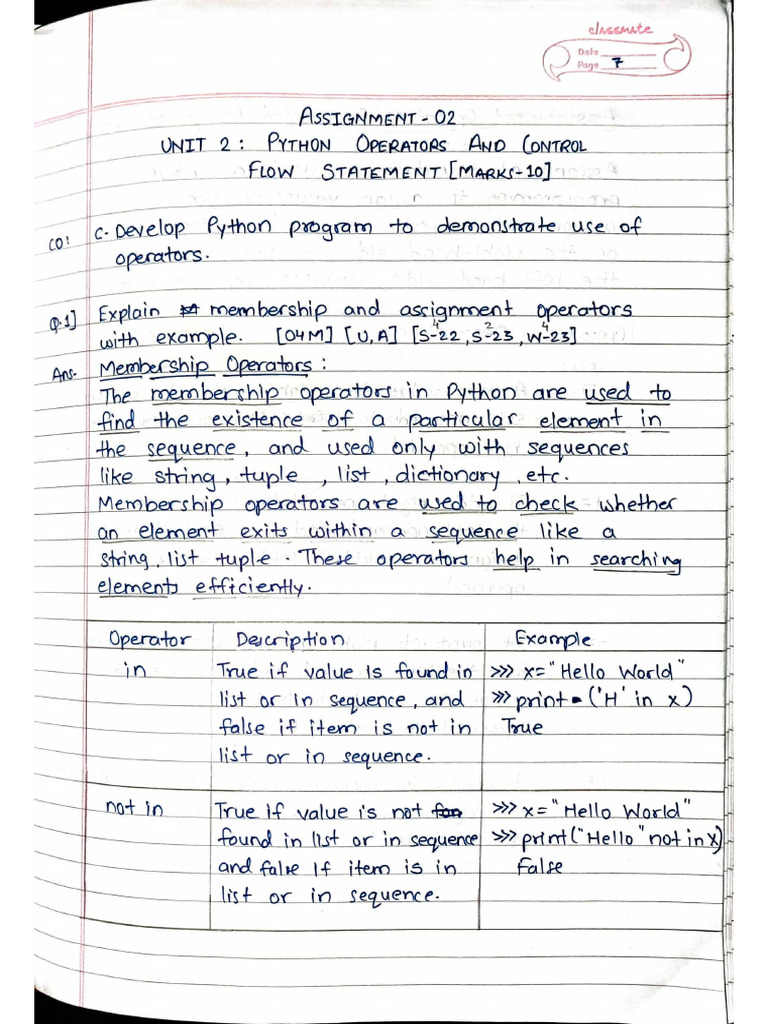 classmate
Date
Page 7
ASSIGNMENT-02
UNIT 2: PYTHON OPERATORS AND CONTROL
FLOW STATEMENT [MARKS-10]
CO: C. Develop Python program to demonstrate use of
operators.
Q.1] Explain membership and assignment operators
with example. [04M] [U,A] [S-22, S-23, W-23]
4 2 4
Ans. Membership Operators:
The membership operators in Python are used to
find the existence of a particular element in
the sequence, and used only with sequences
like string, tuple, list, dictionary, etc.
Membership operators are used to check whether
an element exits within a sequence like a
string, list tuple. These operators help in searching
elements efficiently.
Operator Description Example
in True if value is found in >>> x="Hello World"
list or in sequence, and >>> print-('H' in x)
false if item is not in True
list or in sequence.
not in True if value is not >>> x="Hello World"
found in list or in sequence >>> print("Hello" not in x)
and false if item is in False
list or in sequence.